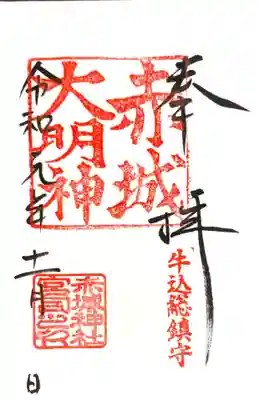 奉拝
赤城
大明神
牛込総鎮守
令和元年十一月 日
赤城神社